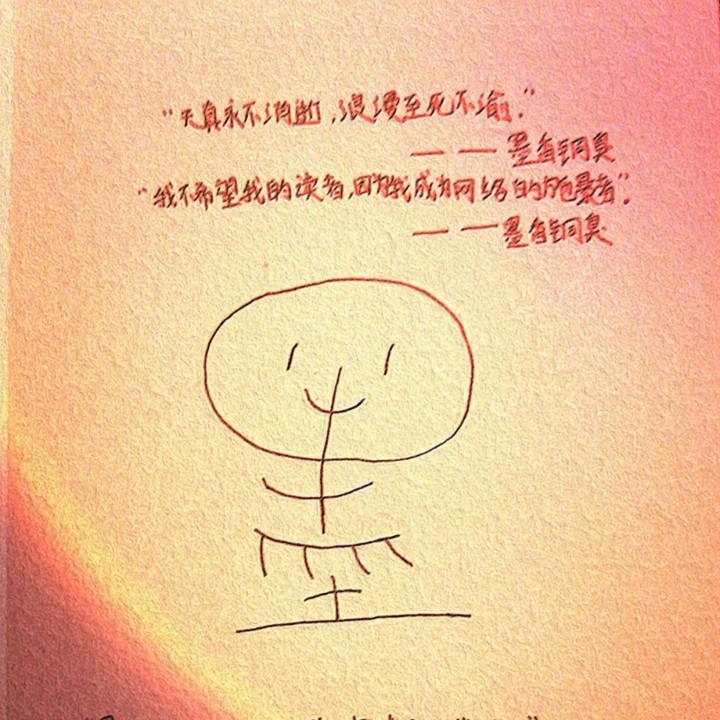 “天真永不消逝，浪漫至死不渝。”
——墨香铜臭
“我不希望我的读者，因为我成为网络的施暴者”。
——墨香铜臭